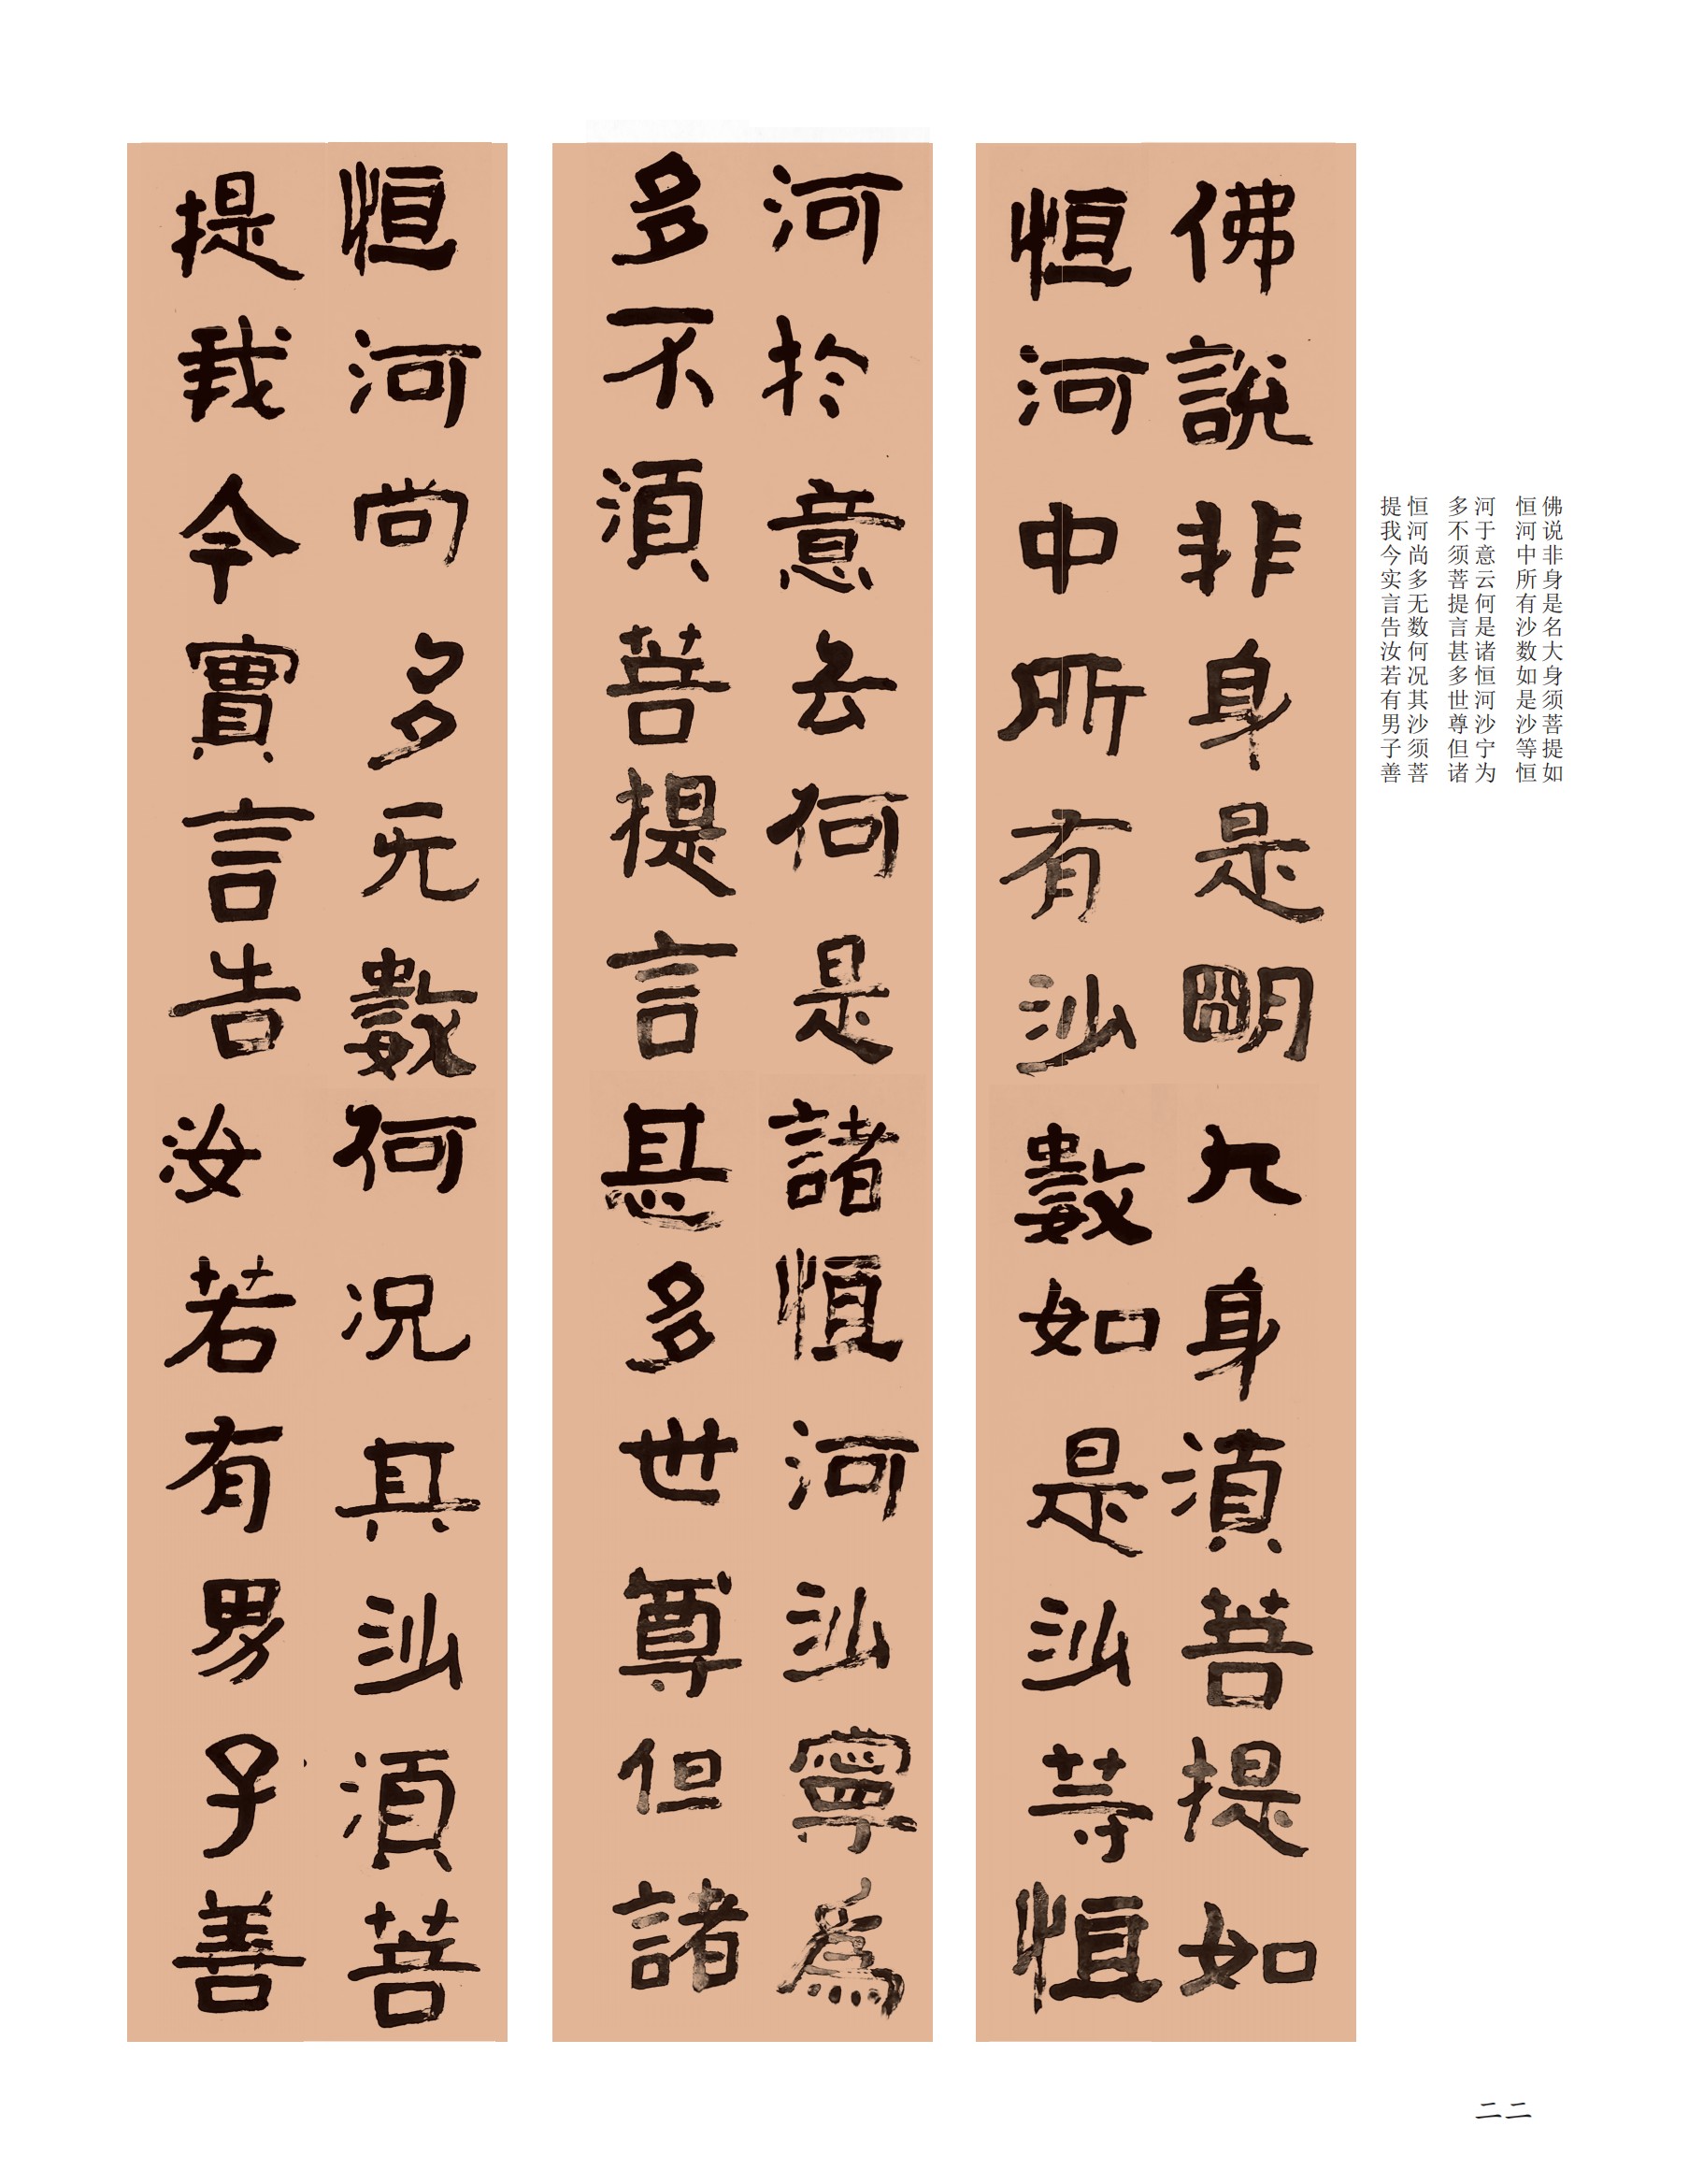 佛说非身是名大身须菩提如
恒河中所有沙数如是沙等恒
河于意云何是诸恒河沙宁为
多不须菩提言甚多世尊但诸
恒河尚多无数何况其沙须菩
提我今实言告汝若有男子善
佛說非身是朙大身湏菩提如
恒河中所有沙數如是沙等恒
河於意云何是諸恒河沙寧為
多不湏菩提言甚多世尊但諸
恒河尚多无數何况其沙湏菩
提我今實言告汝若有男子善
二二